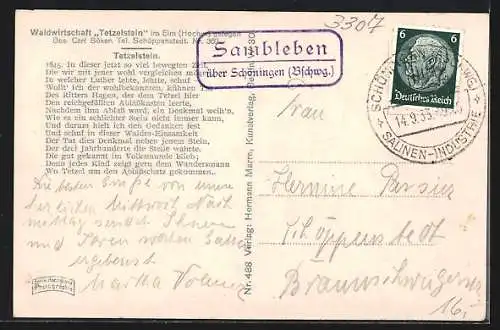 Waldwirtschaft „Tetzelstein" im Elm (Hochw.) gelegen
Bes. Carl Böker, Tel. Schöppenstedt, Nr. 369
Tetzelstein.
1845. In dieser jetzt so viel bewegten Zeit,
Die wir mit jener wohl vergleichen
In welcher Luther lebte, lehrte, schuf
Wollt' ich der wohlbekannten, kühnen
Des Ritters Hagen, der dem Tetzel hier
Den reichgefüllten Ablaßkasten leerte,
Nachdem ihm Ablaß ward, ein Denkmal weih'n.
Wie es ein schlichter Stein nicht immer kann,
Und daraus hielt ich den Gedanken fest
Und schuf in dieser Waldes-Einsamkeit
Der Tat dies Denkmal neber jenem Stein,
Der drei Jahrhunderte die Stelle wahrte,
Die gut gekannt im Volksmunde blieb;
Denn jedes Kind zeigt gern dem Wandersmann
Wo Tetzel um den Ablaßschatz gekommen.
Die besten Grüße von
Mittwoch Nach
mittag sendet Ihnen
und Ihren werten
ergebenst
Martha
Nr. 488 Verlag Hermann Marre, Kunstverlag,
Sambleben
über Schöningen (Bschwg.)
3307
6 6
Deutsches Reich
14.9.33
SALINEN-INDUSTRIE
Frau
Hermine
Schöppenstedt
Braunschweigerstr
16.